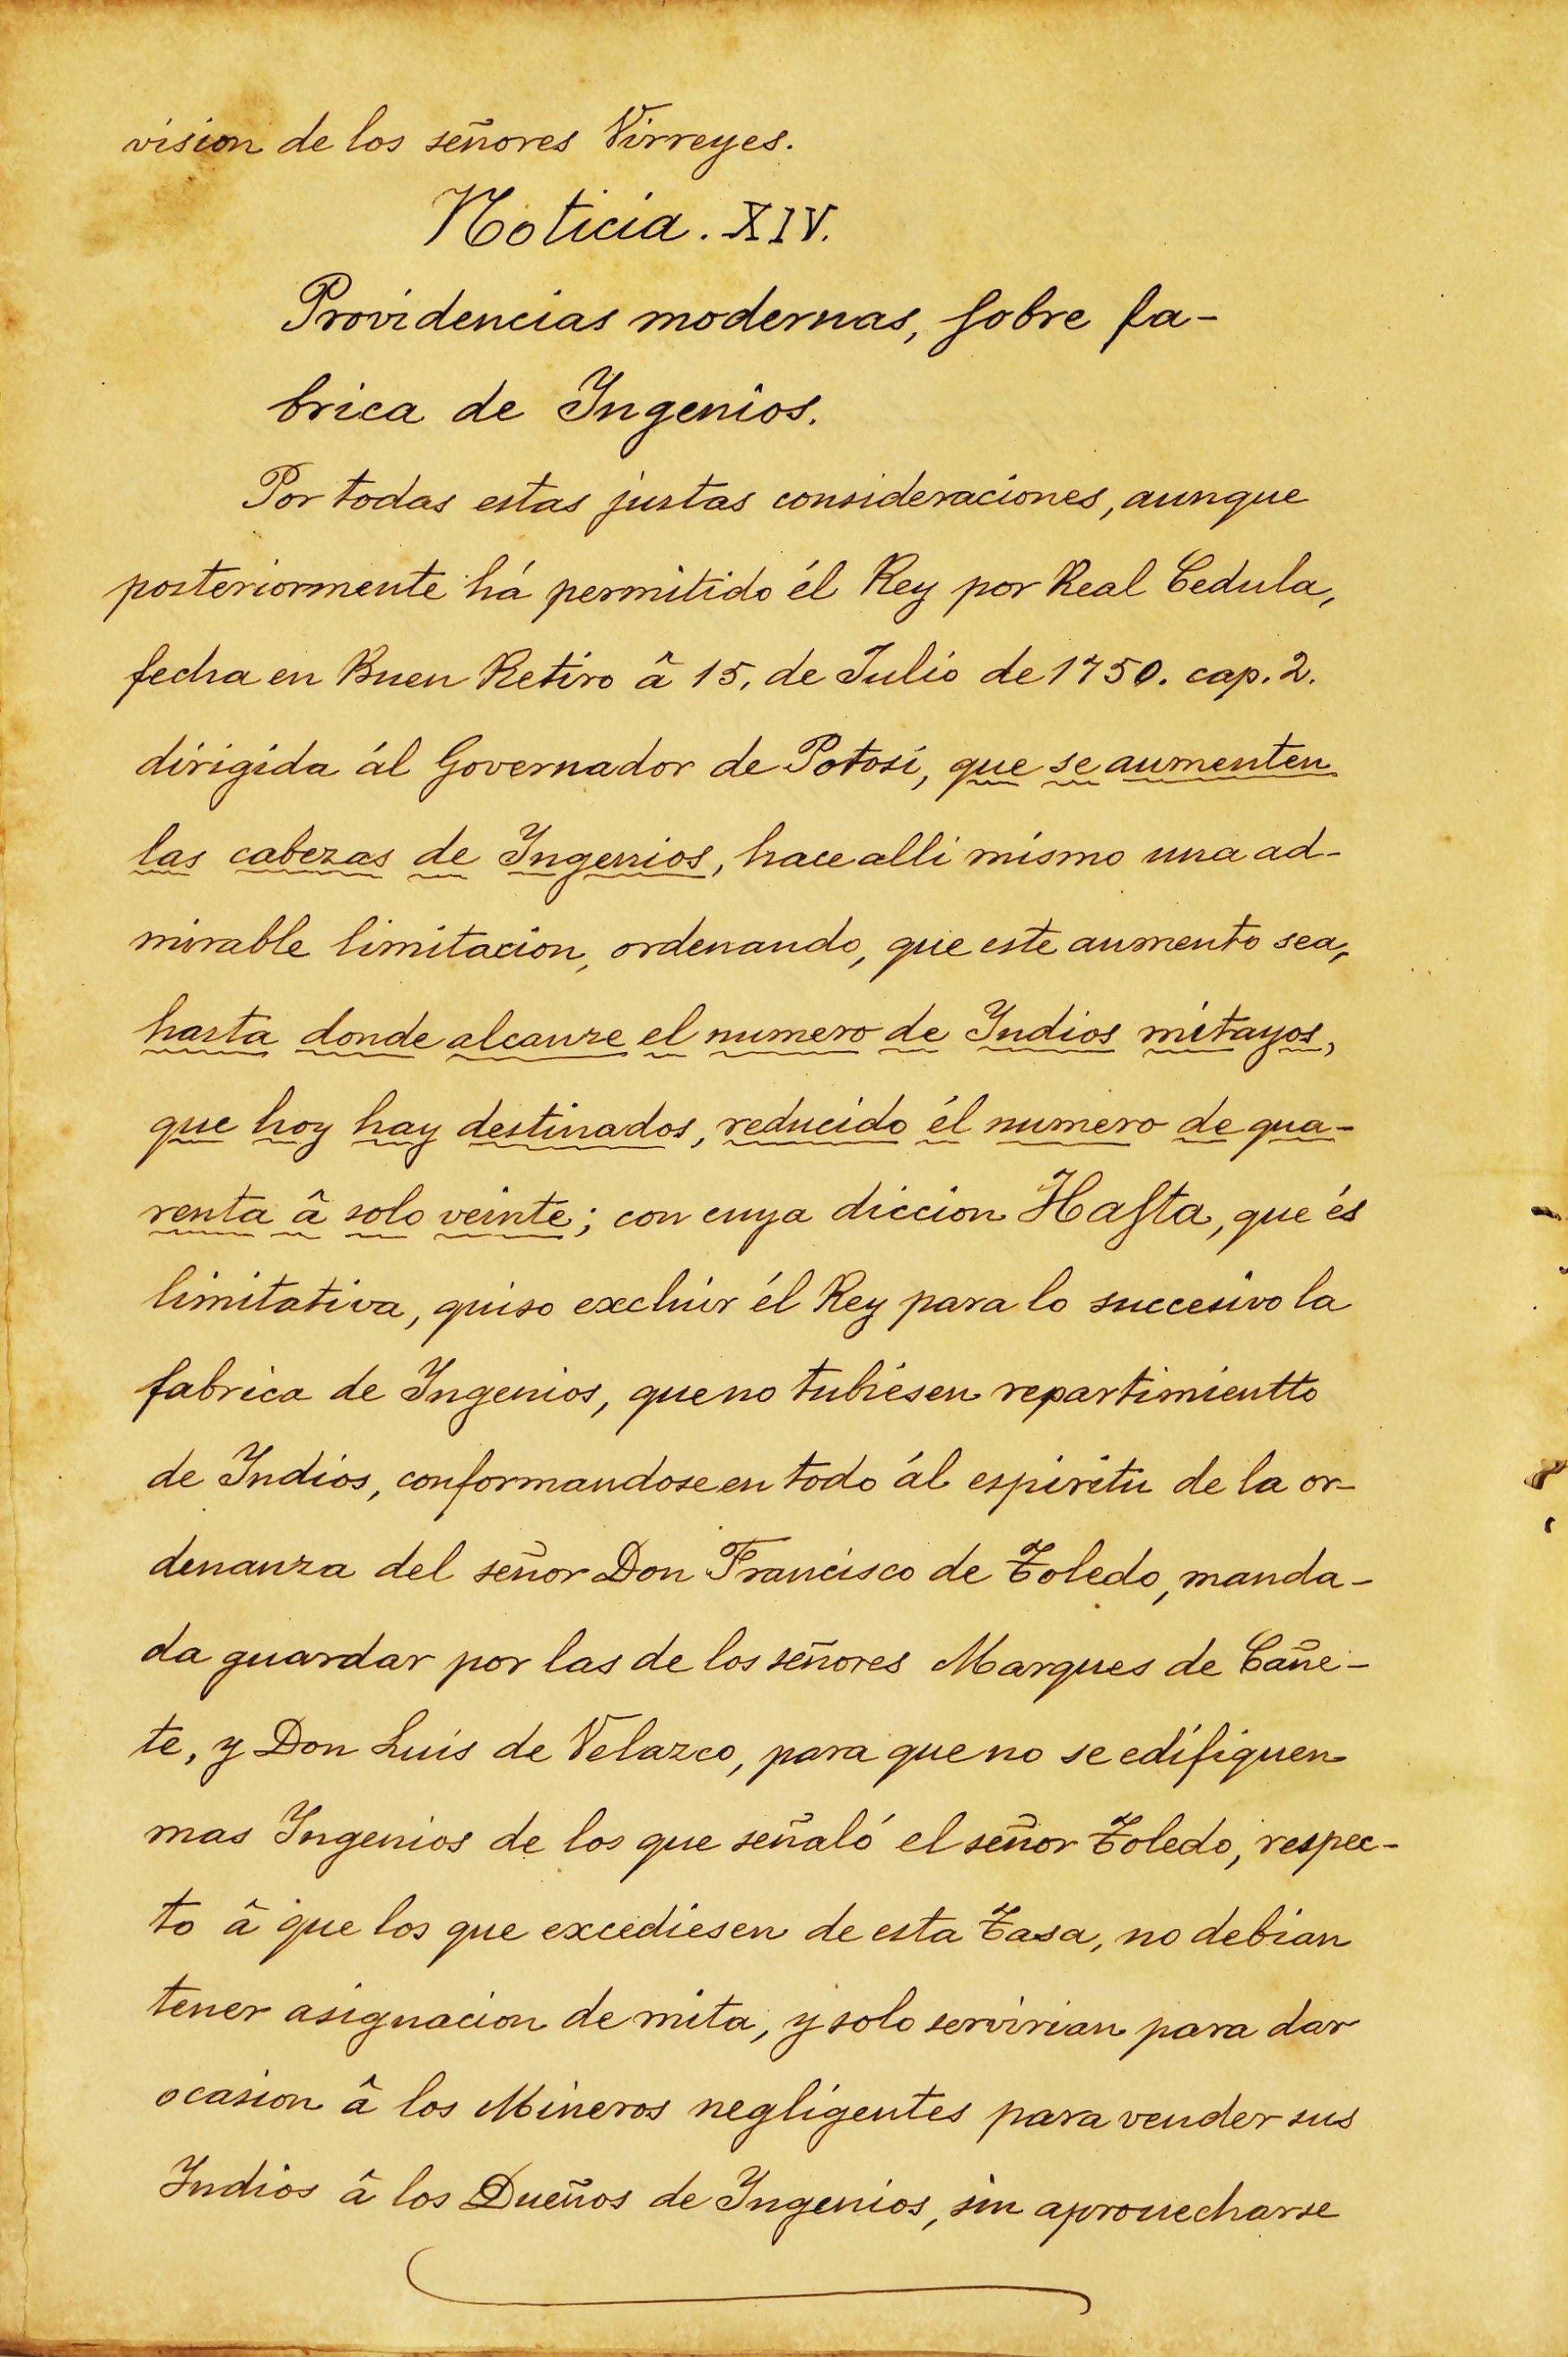 vision de los señores Virreyes.
Noticia. XIV.
Providencias modernas, sobre fa-
brica de Ingenios.
Por todas estas justas consideraciones, aunque
posteriormente há permitido él Rey por Real Cedula,
fecha en Buen Retiro â 15, de Julio de 1750. cap. 2.
dirigida ál Governador de Potosi, que se aumenten
las cabezas de Ingenios, hace alli mismo una ad-
mirable limitacion, ordenando, que este aumento sea,
hasta donde alcanze el numero de Indios mitayos,
que hoy hay destinados, reducido él numero de qua-
renta â solo veinte; con cuya diccion Hasta, que és
limitativa, quiso excluir él Rey para lo succesivo la
fabrica de Ingenios, que no tubiesen repartimientto
de Indios, conformandose en todo ál espiritu de la or-
denanza del señor Don Francisco de Toledo, manda-
da guardar por las de los señores Marques de Cañe-
te, y Don Luis de Velazco, para que no se edifiquen
mas Ingenios de los que señaló el señor Toledo, respec-
to â que los que excediesen de esta Tasa, no debian
tener asignacion de mita, y solo servirian para dar
ocasion â los Mineros negligentes para vender sus
Indios â los Dueños de Ingenios, sin aprouecharse